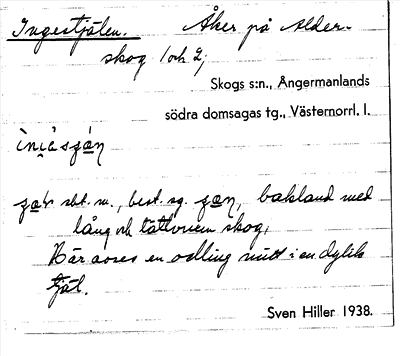 Ingestjälen. Åker på Alder-
skog 1 och 2;
Skogs s:n., Ångermanlands
södra domsagas tg., Västernorrl. l.
sbt. m., best. sg. bakland med
lång och tätvuxen skog,
Här avses en odling mitt i en dylik
tjäl.
Sven Hiller 1938.